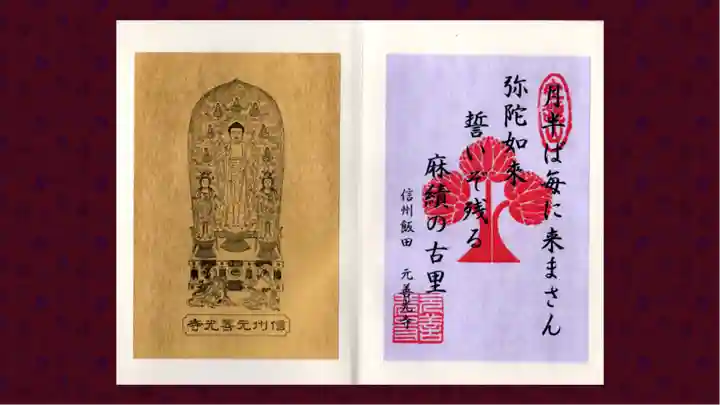 信州元善光寺
月半ば毎に来まさん
弥陀如来
誓いぞ残る
麻績の古里
信州飯田 元善光寺